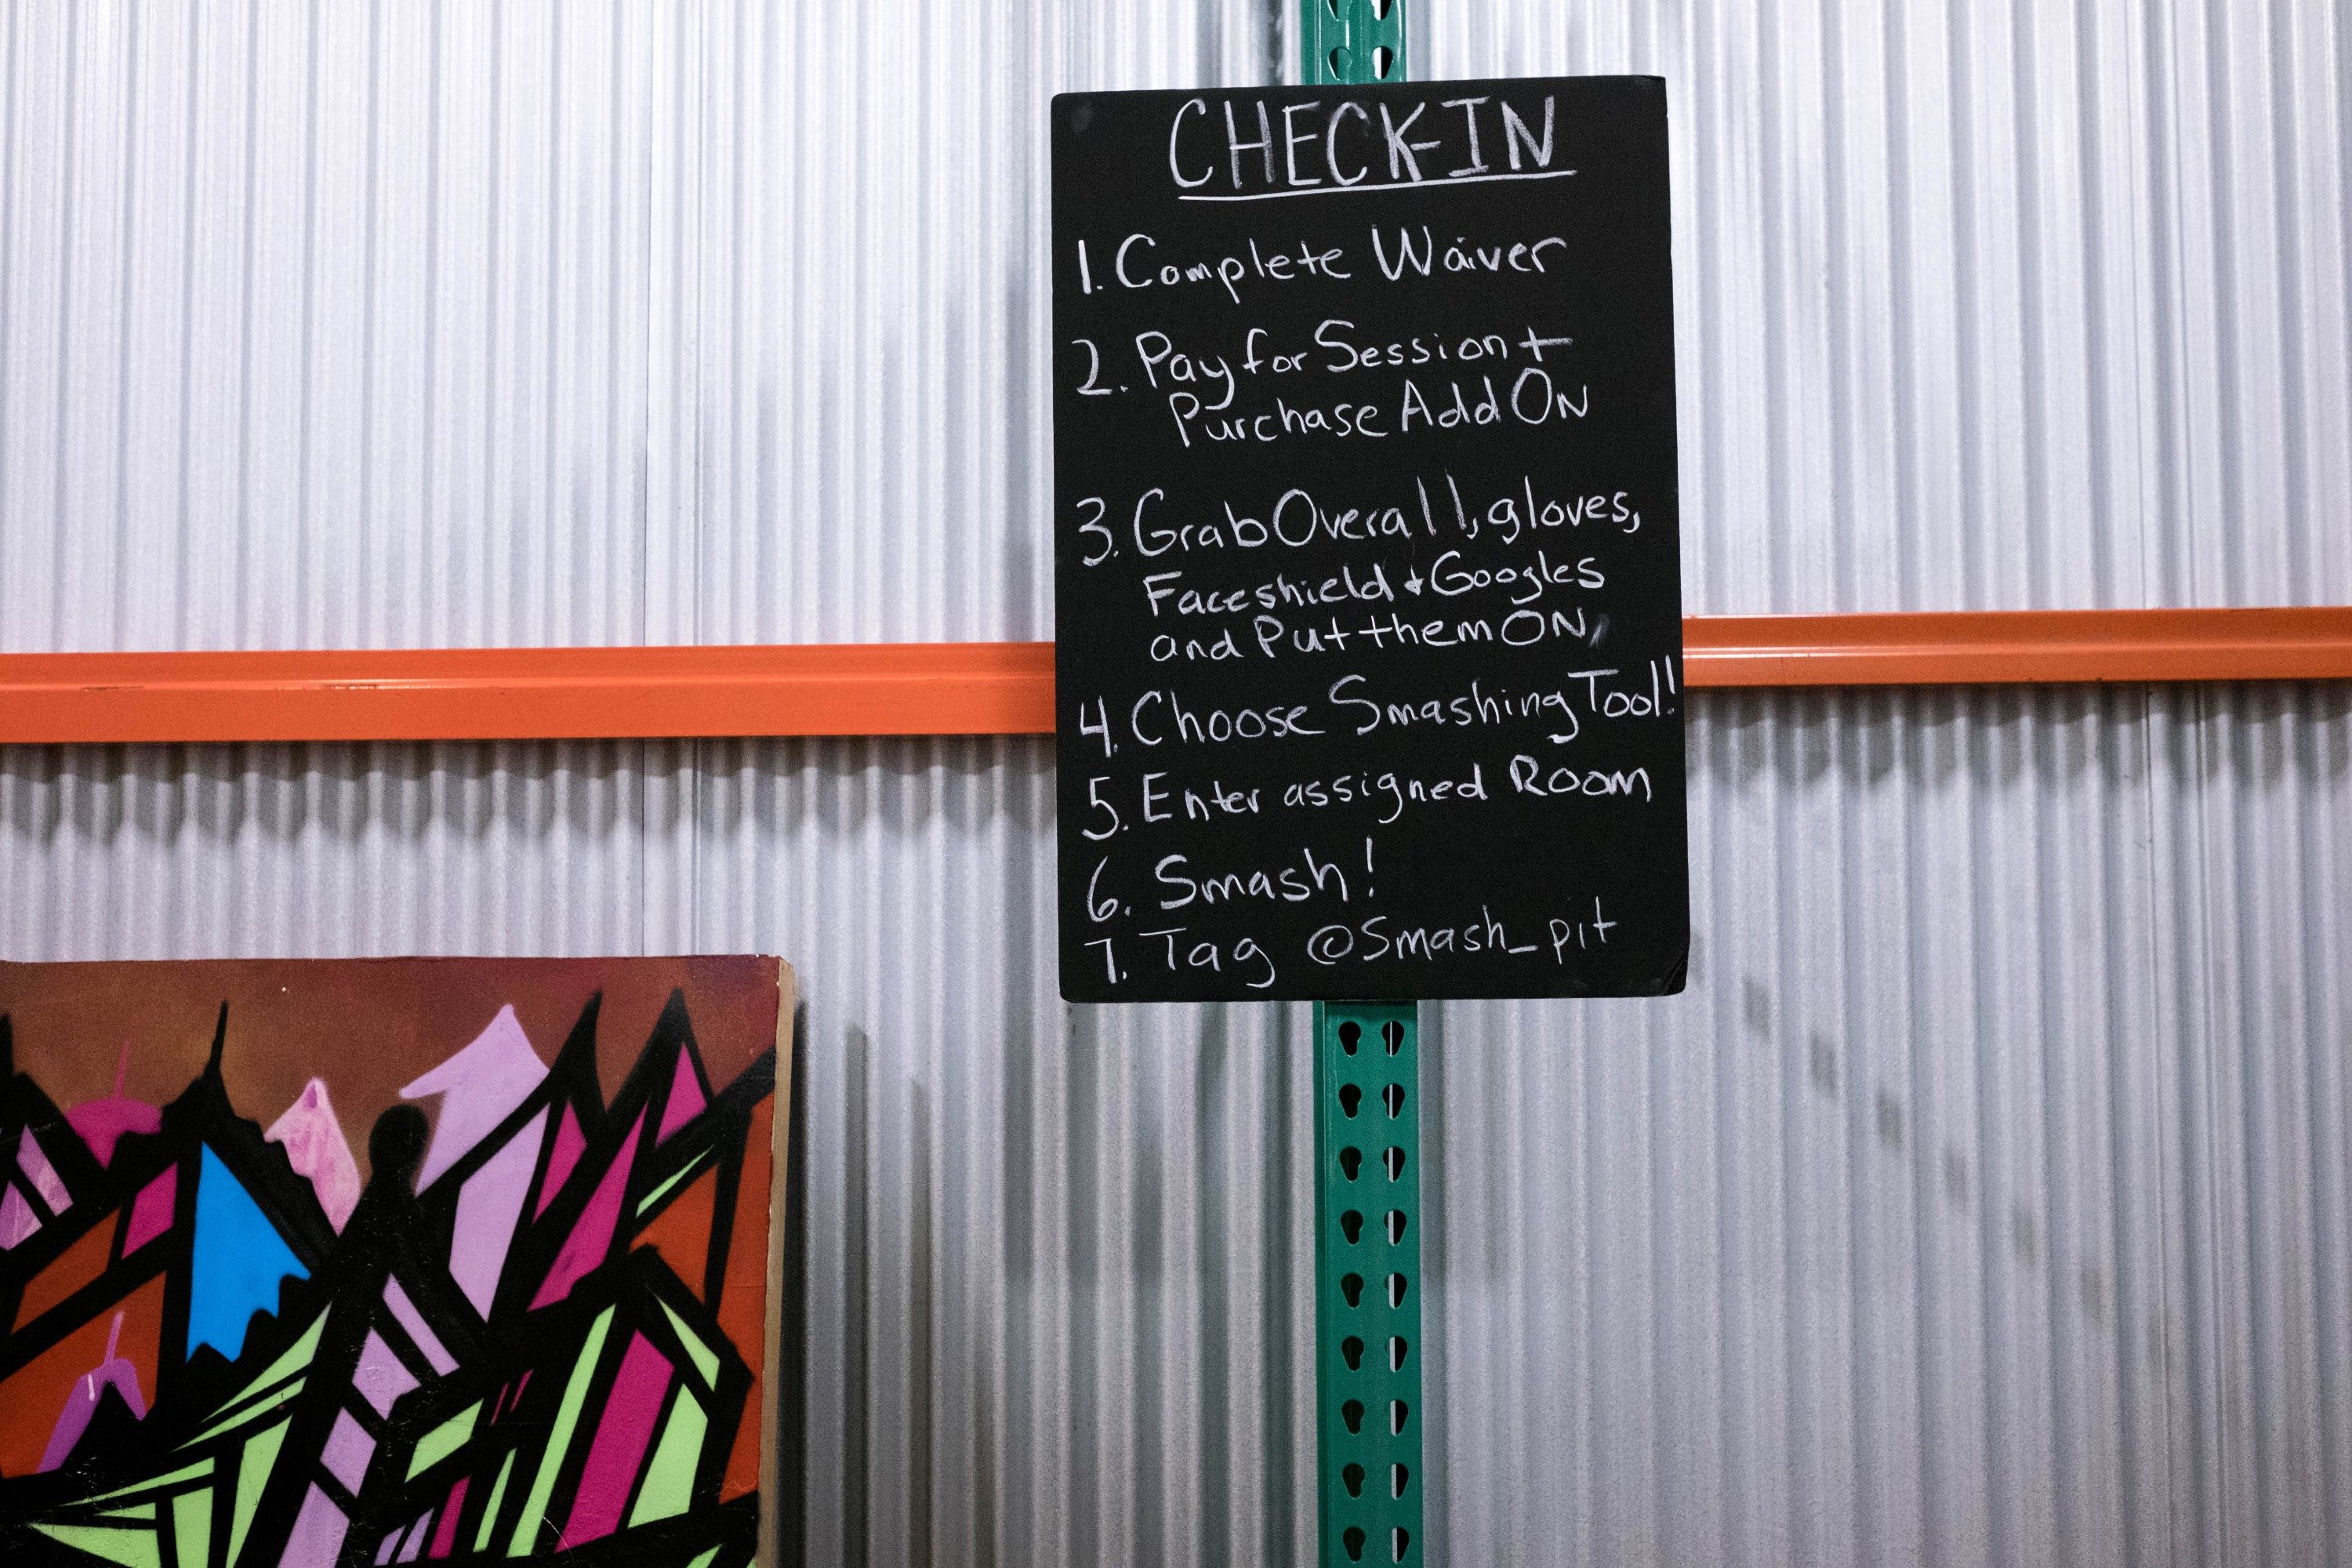 CHECK-IN
1. Complete Waiver
2. Pay for Session +
Purchase Add ON
3. Grab Overall, gloves,
Faceshield + Googles
and Put them ON,
4. Choose Smashing Tool!
5. Enter assigned Room
6. Smash!
7. Tag @Smash_pit